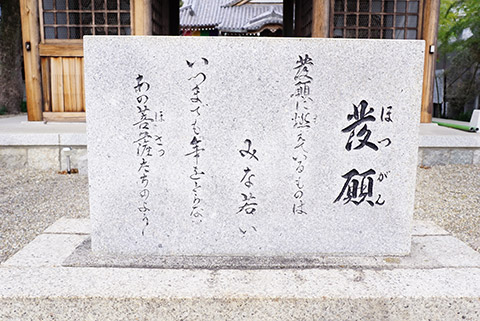 發願
ほつがん
發願に燃えているものは
みな若い
いつまでも年をとらない
あの菩薩たちのように
ぼさつ